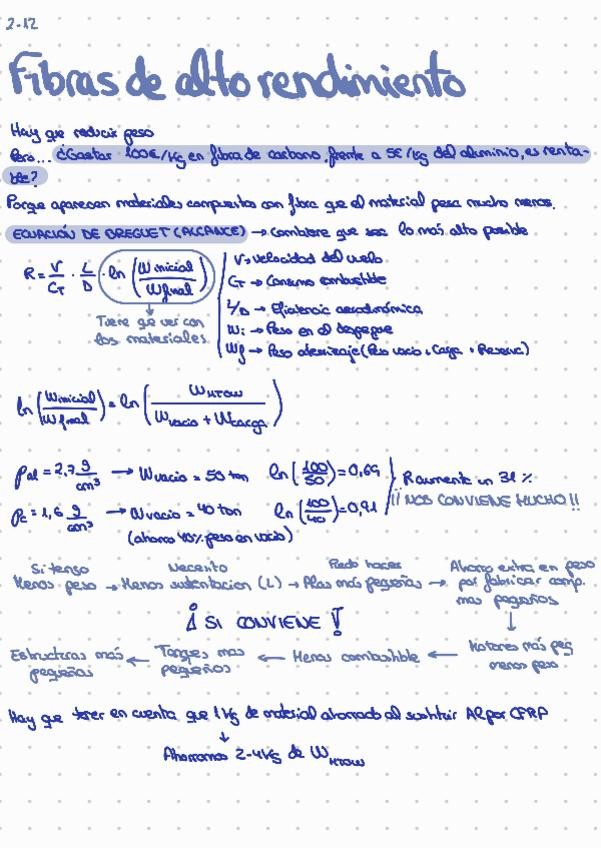 2-12
Fibras de alto rendimiento
Hay que reducir peso
Pero... ¿Gastar 100€/Kg en fibra de carbono, frente a 5€/Kg del aluminio, es renta-
ble?
Porque aparecen materiales compuestos con fibra que el material pesa mucho menos.
ECUACIÓN DE BREGUET (ALCANCE) → Combiene que sea lo más alto posible
R = V/C_T · L/D · ln (W inicial / W final)
Tiene que ver con
los materiales
V → velocidad del vuelo
C_T → Consumo combustible
L/D → Eficiencia aerodinámica
W_i → Peso en el despegue
W_f → Peso aterrizaje (Peso vacio + Carga + Reserva)
ln (W inicial / W final) = ln (W_MTOW / W vacio + W carga)
ρ_al = 2,7 g/cm³ → W vacio = 50 ton ln (100/50) = 0,69
ρ_c = 1,6 g/cm³ → W vacio = 40 ton ln (100/40) = 0,91
R aumenta un 31 %
¡¡ NOS CONVIENE MUCHO !!
(ahorro 40% peso en vacio)
Si tengo Menos peso → Necesito Menos sustentacion (L) → Puedo hacer Alas más pequeñas → Ahorro extra en peso por fabricar comp. mas pequeños
↓
¡ SI CONVIENE !
Estructuras más pequeñas ← Tanques mas pequeños ← Menos combustible ← Motores más peq menos peso
Hay que tener en cuenta que 1 Kg de material ahorrado al sustituir Al por CFRP
↓
Ahorramos 2-4Kg de W_MTOW